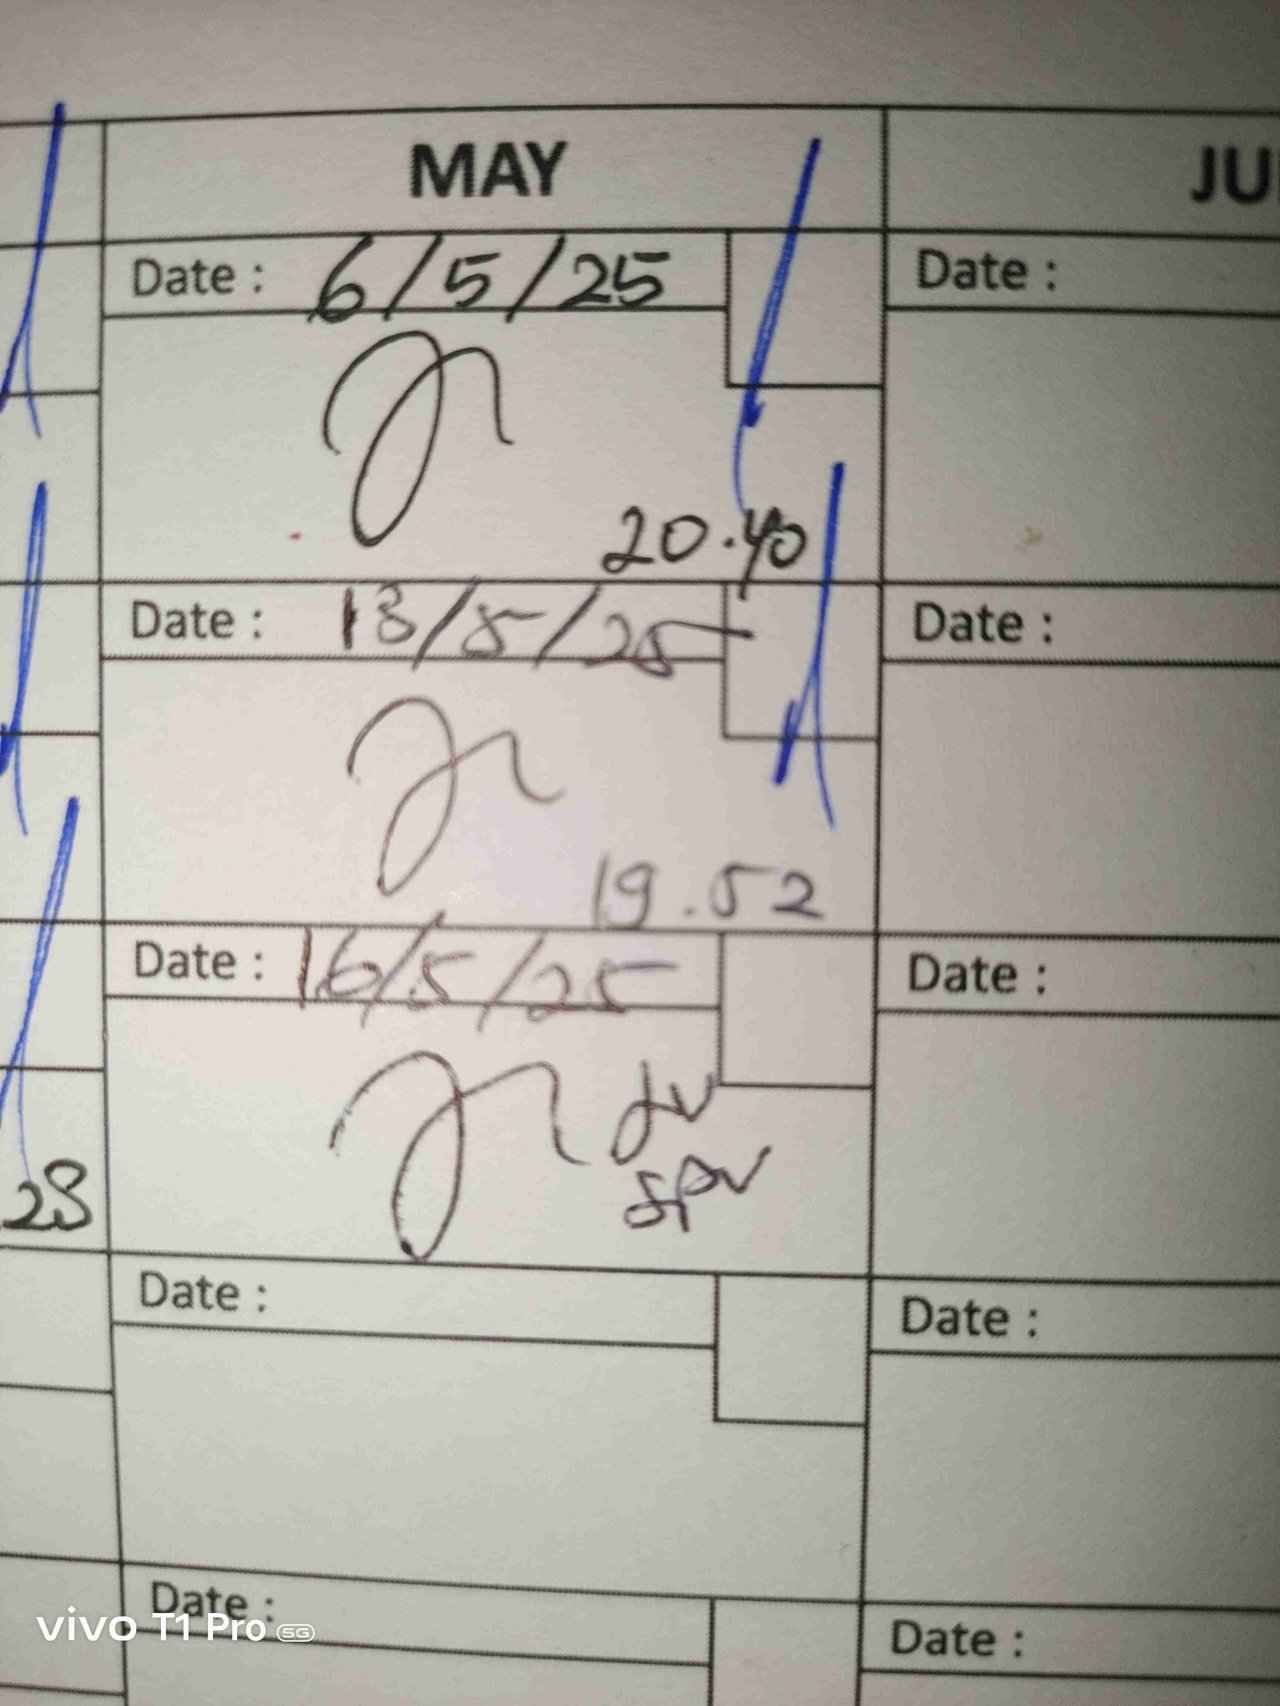 MAY
JU
Date : 6/5/25
Date :
20.40
Date : 13/5/25
Date :
19.52
Date : 16/5/25
Date :
SPV
28
Date :
Date :
Date :
Date :
vivo T1 Pro 5G